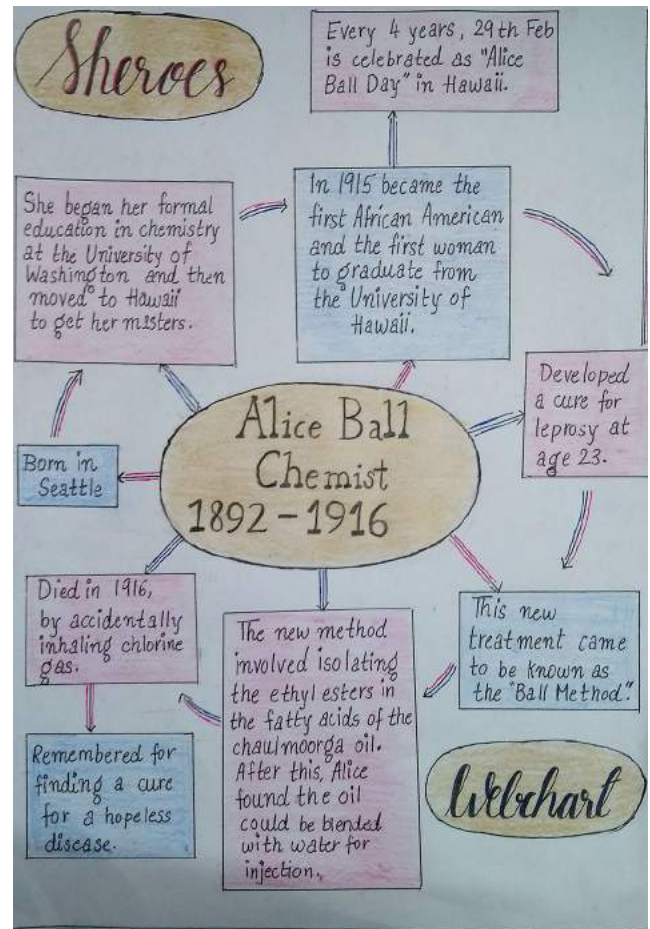 Sheroes
Every 4 years, 29th Feb
is celebrated as "Alice
Ball Day" in Hawaii.
She began her formal
education in chemistry
at the University of
Washington and then
moved to Hawaii
to get her masters.
In 1915 became the
first African American
and the first woman
to graduate from
the University of
Hawaii.
Developed
a cure for
leprosy at
age 23.
Alice Ball
Chemist
1892-1916
Born in
Seattle
Died in 1916,
by accidentally
inhaling chlorine
gas.
The new method
involved isolating
the ethyl esters in
the fatty acids of the
chaulmoorga oil.
After this, Alice
found the oil
could be blended
with water for
injection.
This new
treatment came
to be known as
the "Ball Method".
Remembered for
finding a cure
for a hopeless
disease.
Webchart